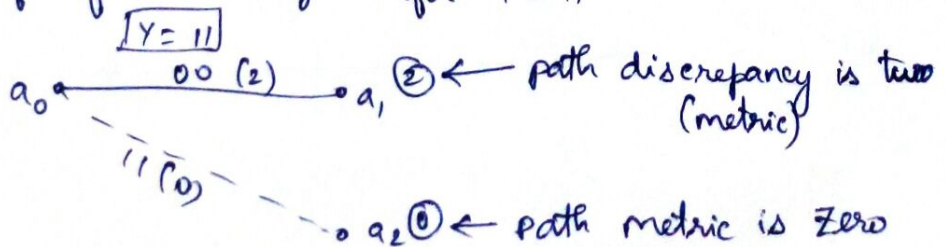 Y = 11
00 (2)
a₀ a₁ ② ← path discrepancy is two
(metric)
11 (0)
a₂ ⓪ ← path metric is Zero